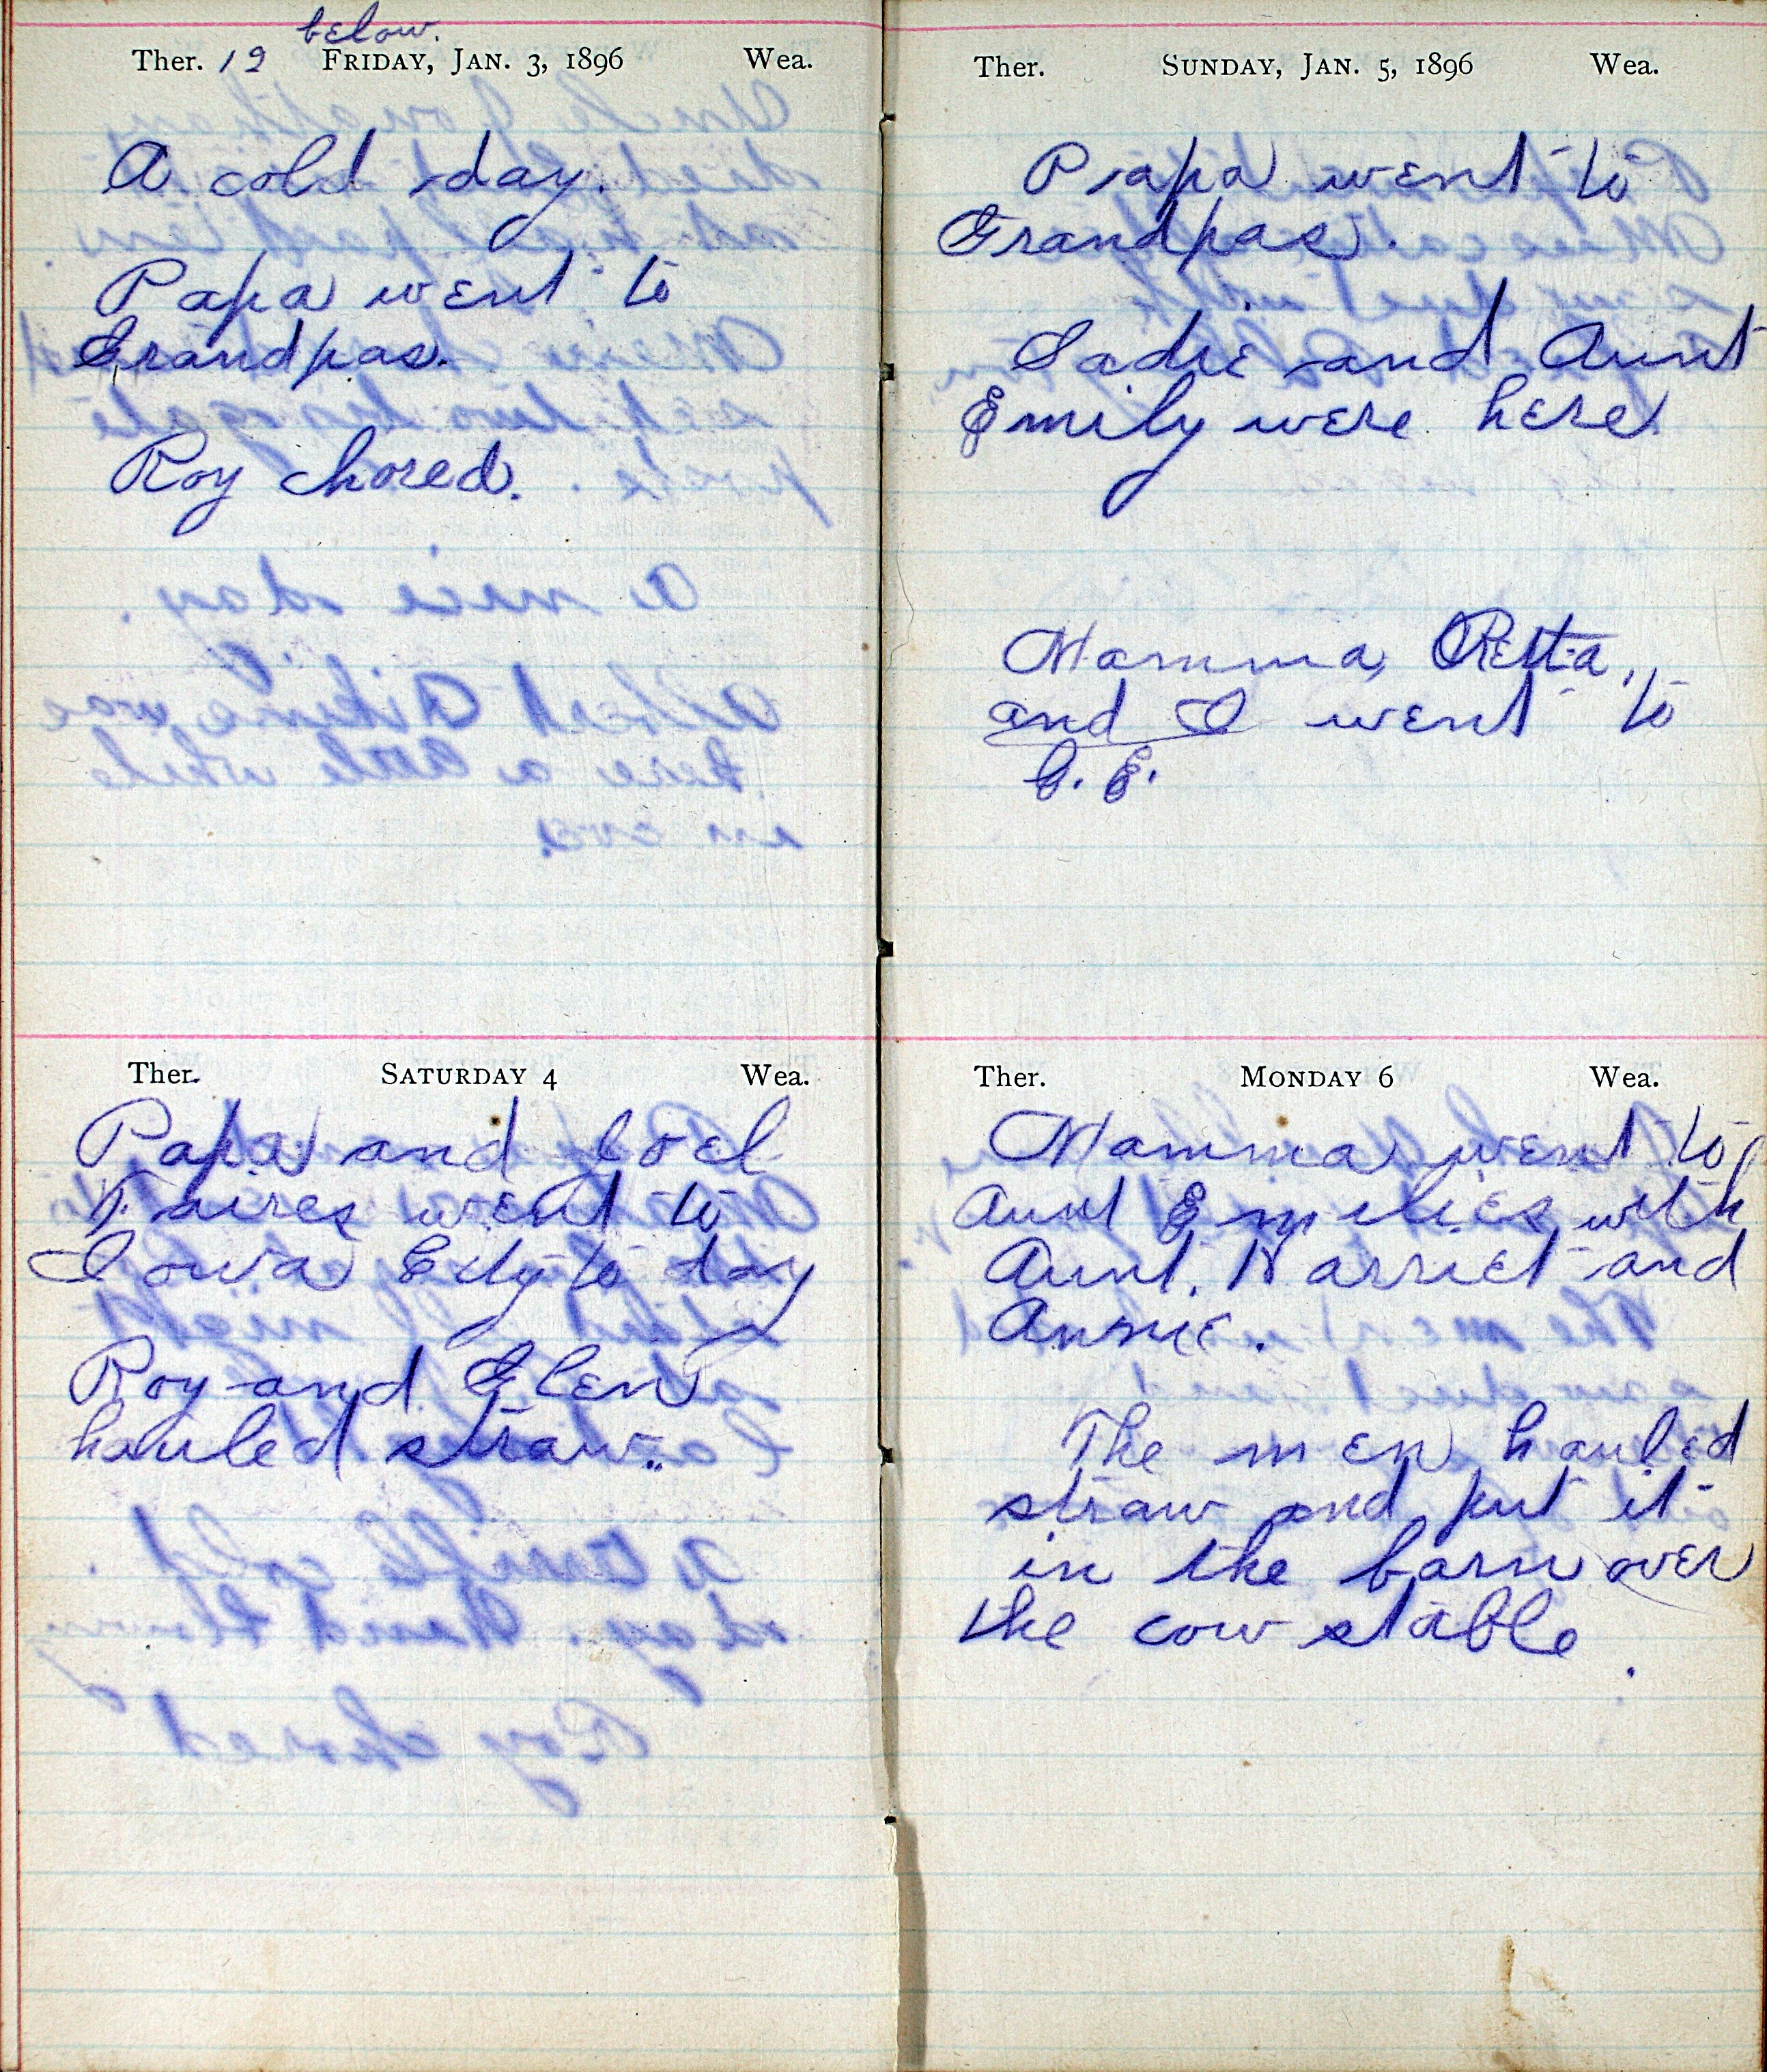 below.
Ther. 12 FRIDAY, JAN. 3, 1896 Wea.
A cold day.
Papa went to
Grandpas.
Roy chored.
Ther. SATURDAY 4 Wea.
Papa and Joel
Faires went to
Iowa City to day
Roy and Glen
hauled straw..
Ther. SUNDAY, JAN. 5, 1896 Wea.
Papa went to
Grandpas.
Sadie and Aunt
Emily were here
Mamma, Retta,
and I went to
C. E.
Ther. MONDAY 6 Wea.
Mamma went to
Aunt Emilies with
Aunt. Harriet and
Annie.
The men hauled
straw and put it
in the barn over
the cow stable.